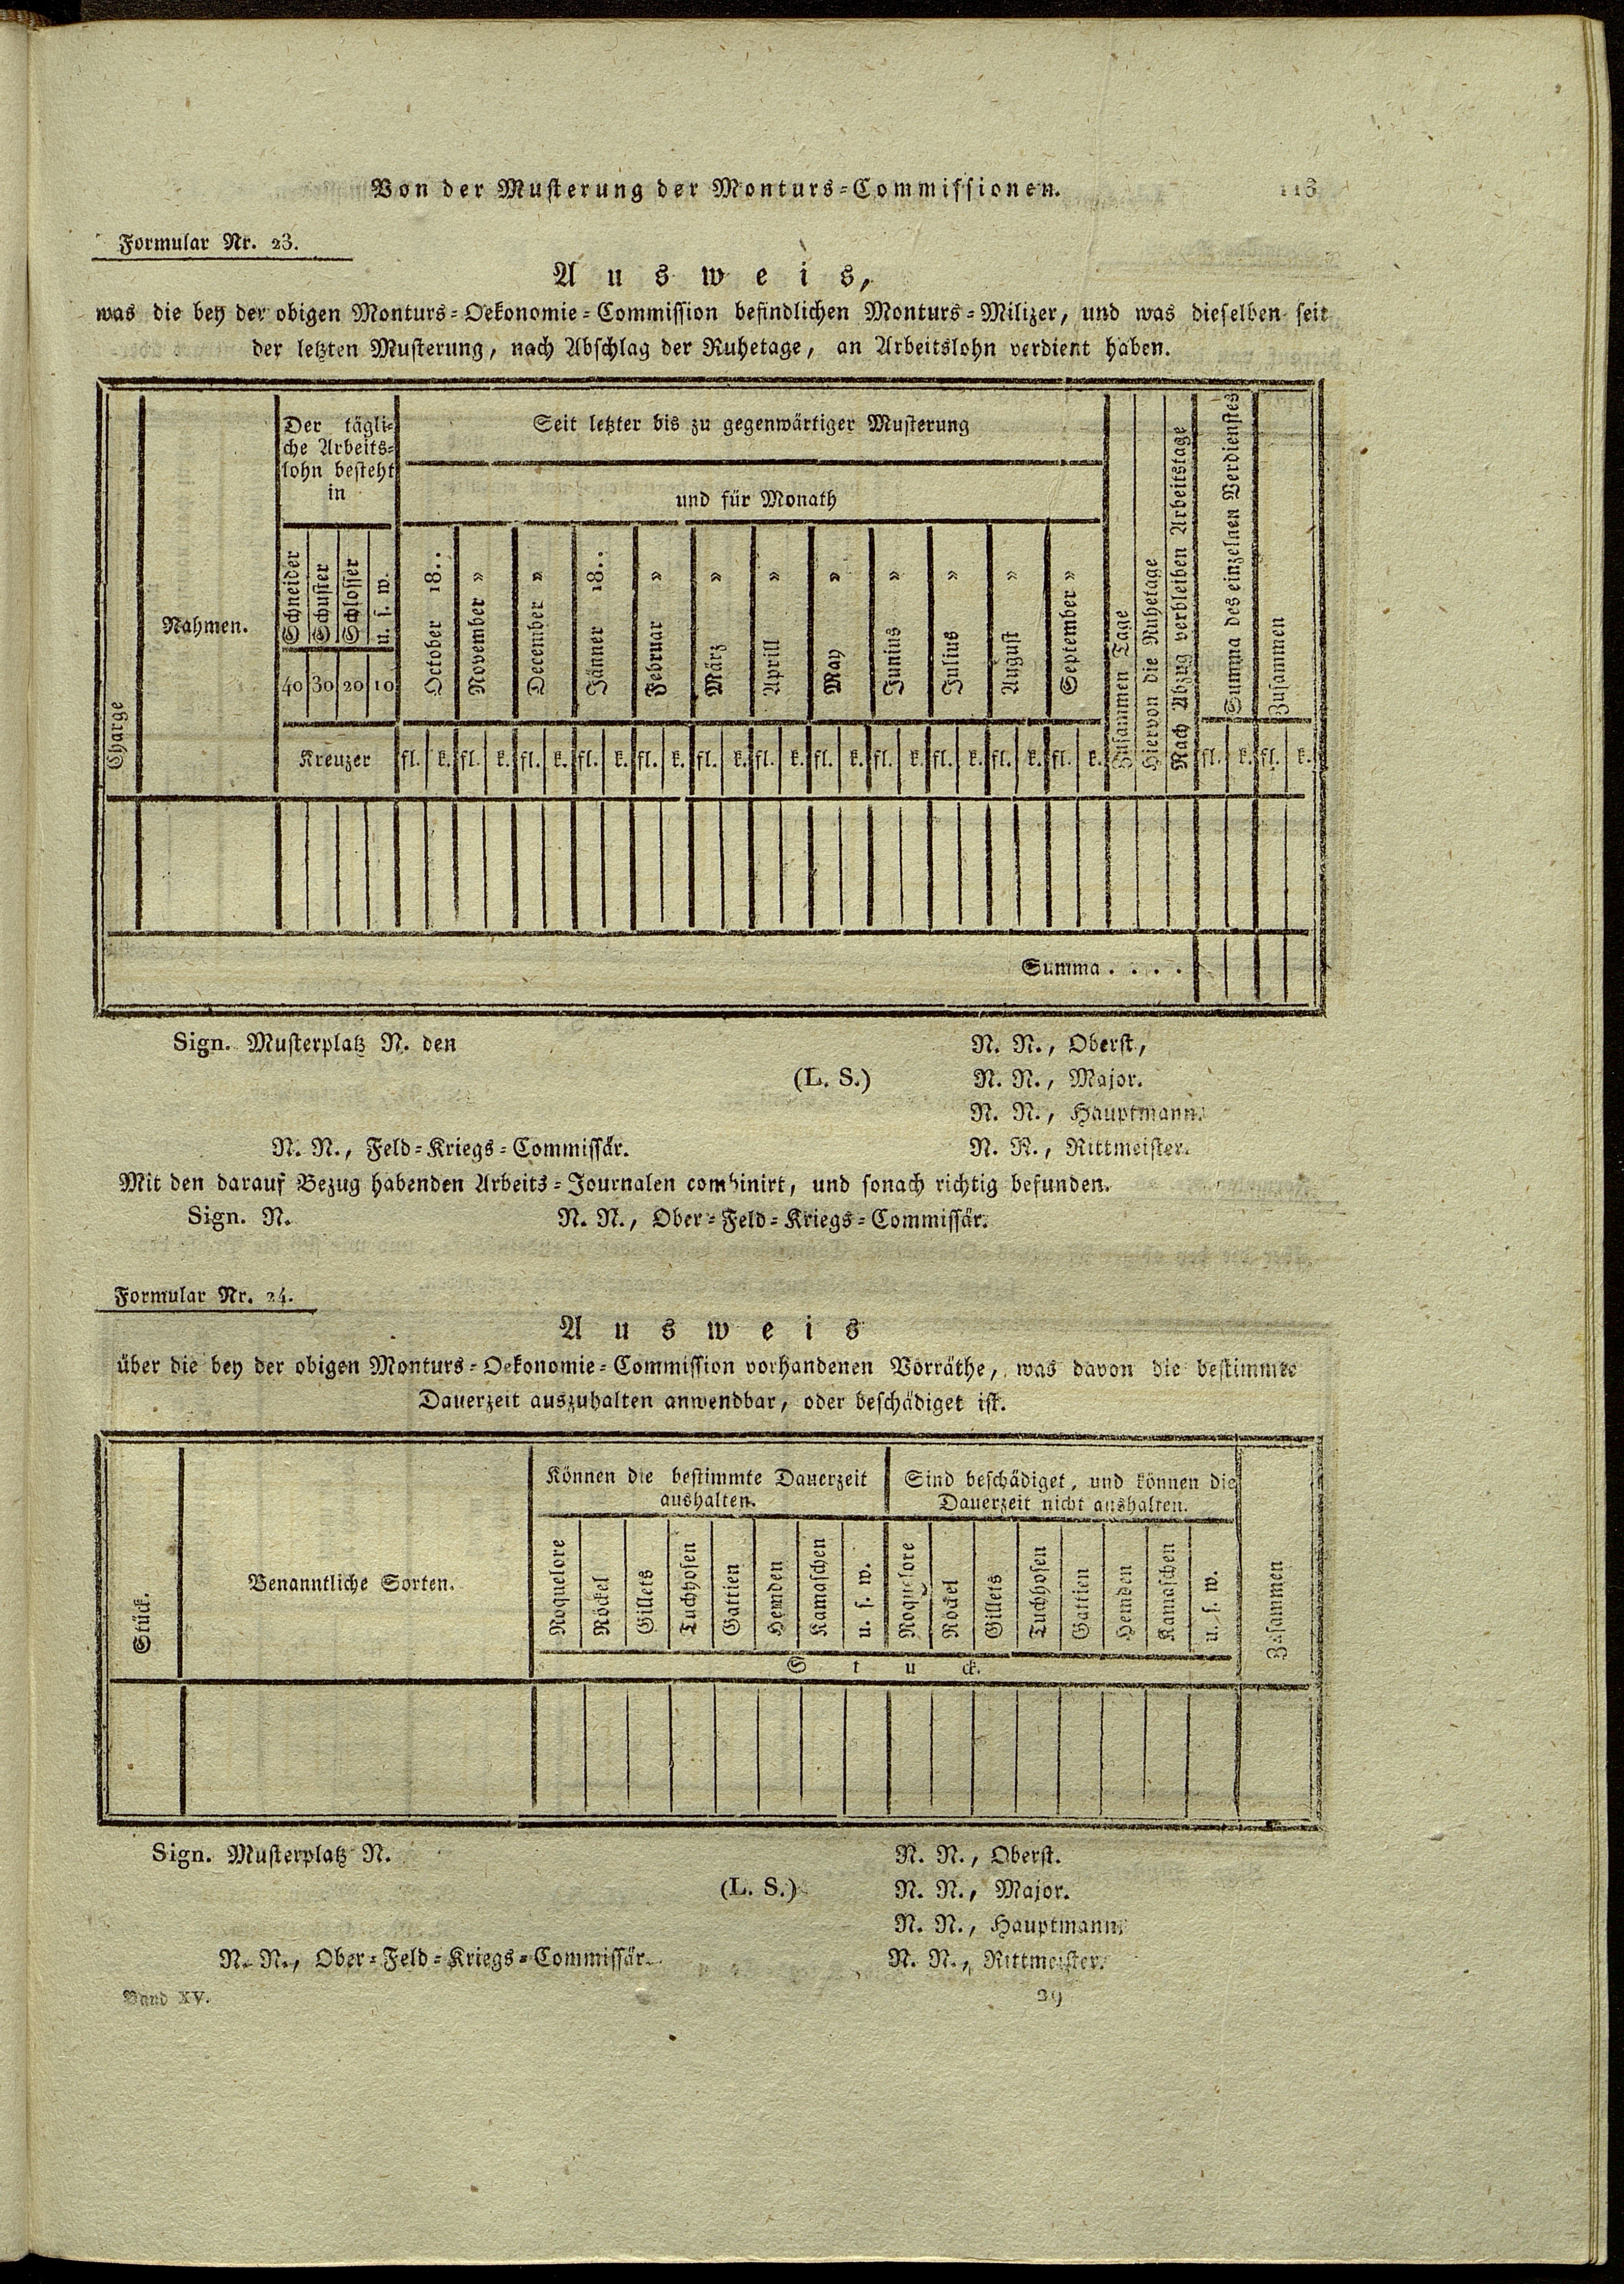 Von der Musterung der Monturs-Commissionen. 113
Formular Nr. 23.
Ausweis,
was die bey der obigen Monturs-Oekonomie-Commission befindlichen Monturs-Milizer, und was dieselben seit
der letzten Musterung, nach Abschlag der Ruhetage, an Arbeitslohn verdient haben.
Charge
Nahmen.
Der tägli-
che Arbeits-
lohn besteht
in
Schneider
Schuster
Schlosser
u. s. w.
40 30 20 10
Kreuzer
Seit letzter bis zu gegenwärtiger Musterung
und für Monath
October 18..
November »
December »
Jänner 18..
Februar »
März »
Aprill »
May »
Junius »
Julius »
August »
September »
fl. k. fl. k. fl. k. fl. k. fl. k. fl. k. fl. k. fl. k. fl. k. fl. k. fl. k. fl. k.
Zusammen Tage
Hiervon die Ruhetage
Nach Abzug verbleiben Arbeitstage
Summa des einzelnen Verdienstes
fl. k.
Zusammen
fl. k.
Summa . . . .
Sign. Musterplatz N. den
N. N., Oberst,
(L. S.)
N. N., Major.
N. N., Hauptmann.
N. N., Feld-Kriegs-Commissär.
N. N., Rittmeister.
Mit den darauf Bezug habenden Arbeits-Journalen combinirt, und sonach richtig befunden.
Sign. N.
N. N., Ober-Feld-Kriegs-Commissär.
Formular Nr. 24.
Ausweis
über die bey der obigen Monturs-Oekonomie-Commission vorhandenen Vorräthe, was davon die bestimmte
Dauerzeit auszuhalten anwendbar, oder beschädiget ist.
Stück.
Benanntliche Sorten.
Können die bestimmte Dauerzeit
aushalten.
Roquelore
Röckel
Gillets
Tuchhosen
Gattien
Hemden
Kamaschen
u. s. w.
Sind beschädiget, und können die
Dauerzeit nicht aushalten.
Roquelore
Röckel
Gillets
Tuchhosen
Gattien
Hemden
Kamaschen
u. s. w.
Stuck.
Zusammen
Sign. Musterplatz N.
N. N., Oberst.
(L. S.)
N. N., Major.
N. N., Hauptmann.
N. N., Ober-Feld-Kriegs-Commissär.
N. N., Rittmeister.
Band XV. 29